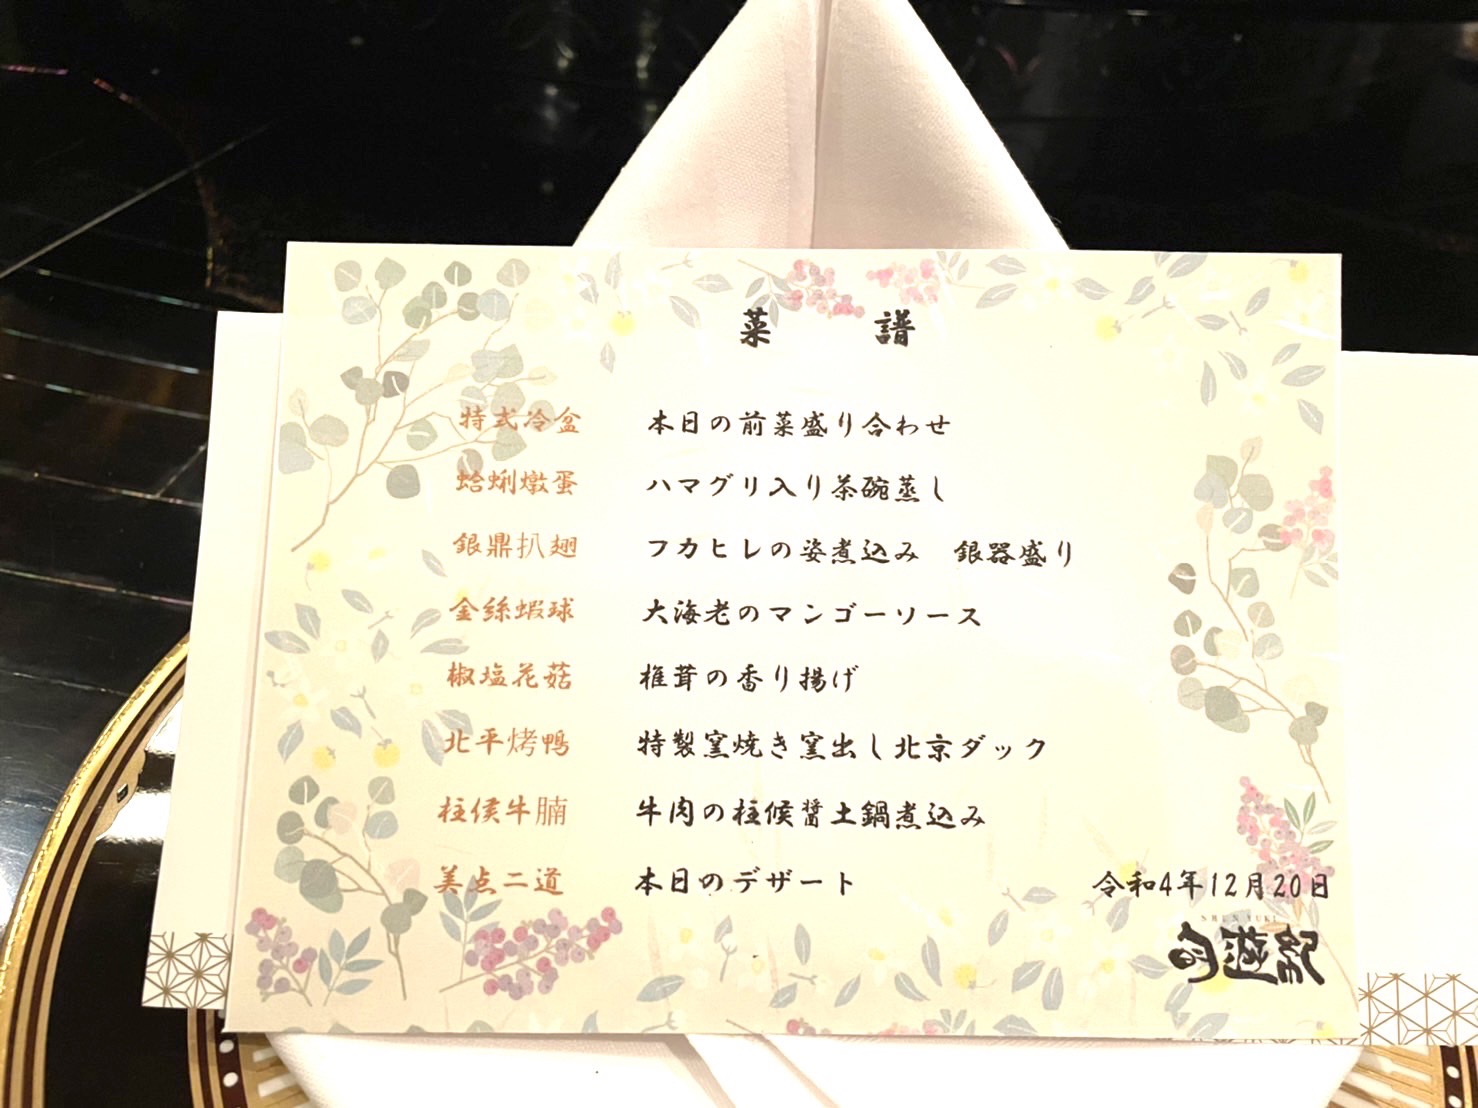 菜 譜
特式冷盆 本日の前菜盛り合わせ
蛤蜊燉蛋 ハマグリ入り茶碗蒸し
銀鼎扒翅 フカヒレの姿煮込み 銀器盛り
金絲蝦球 大海老のマンゴーソース
椒塩花菇 椎茸の香り揚げ
北平烤鴨 特製窯焼き窯出し北京ダック
柱侯牛腩 牛肉の柱候醤土鍋煮込み
美点二道 本日のデザート
令和4年12月20日
SHUN YUKI
旬遊紀